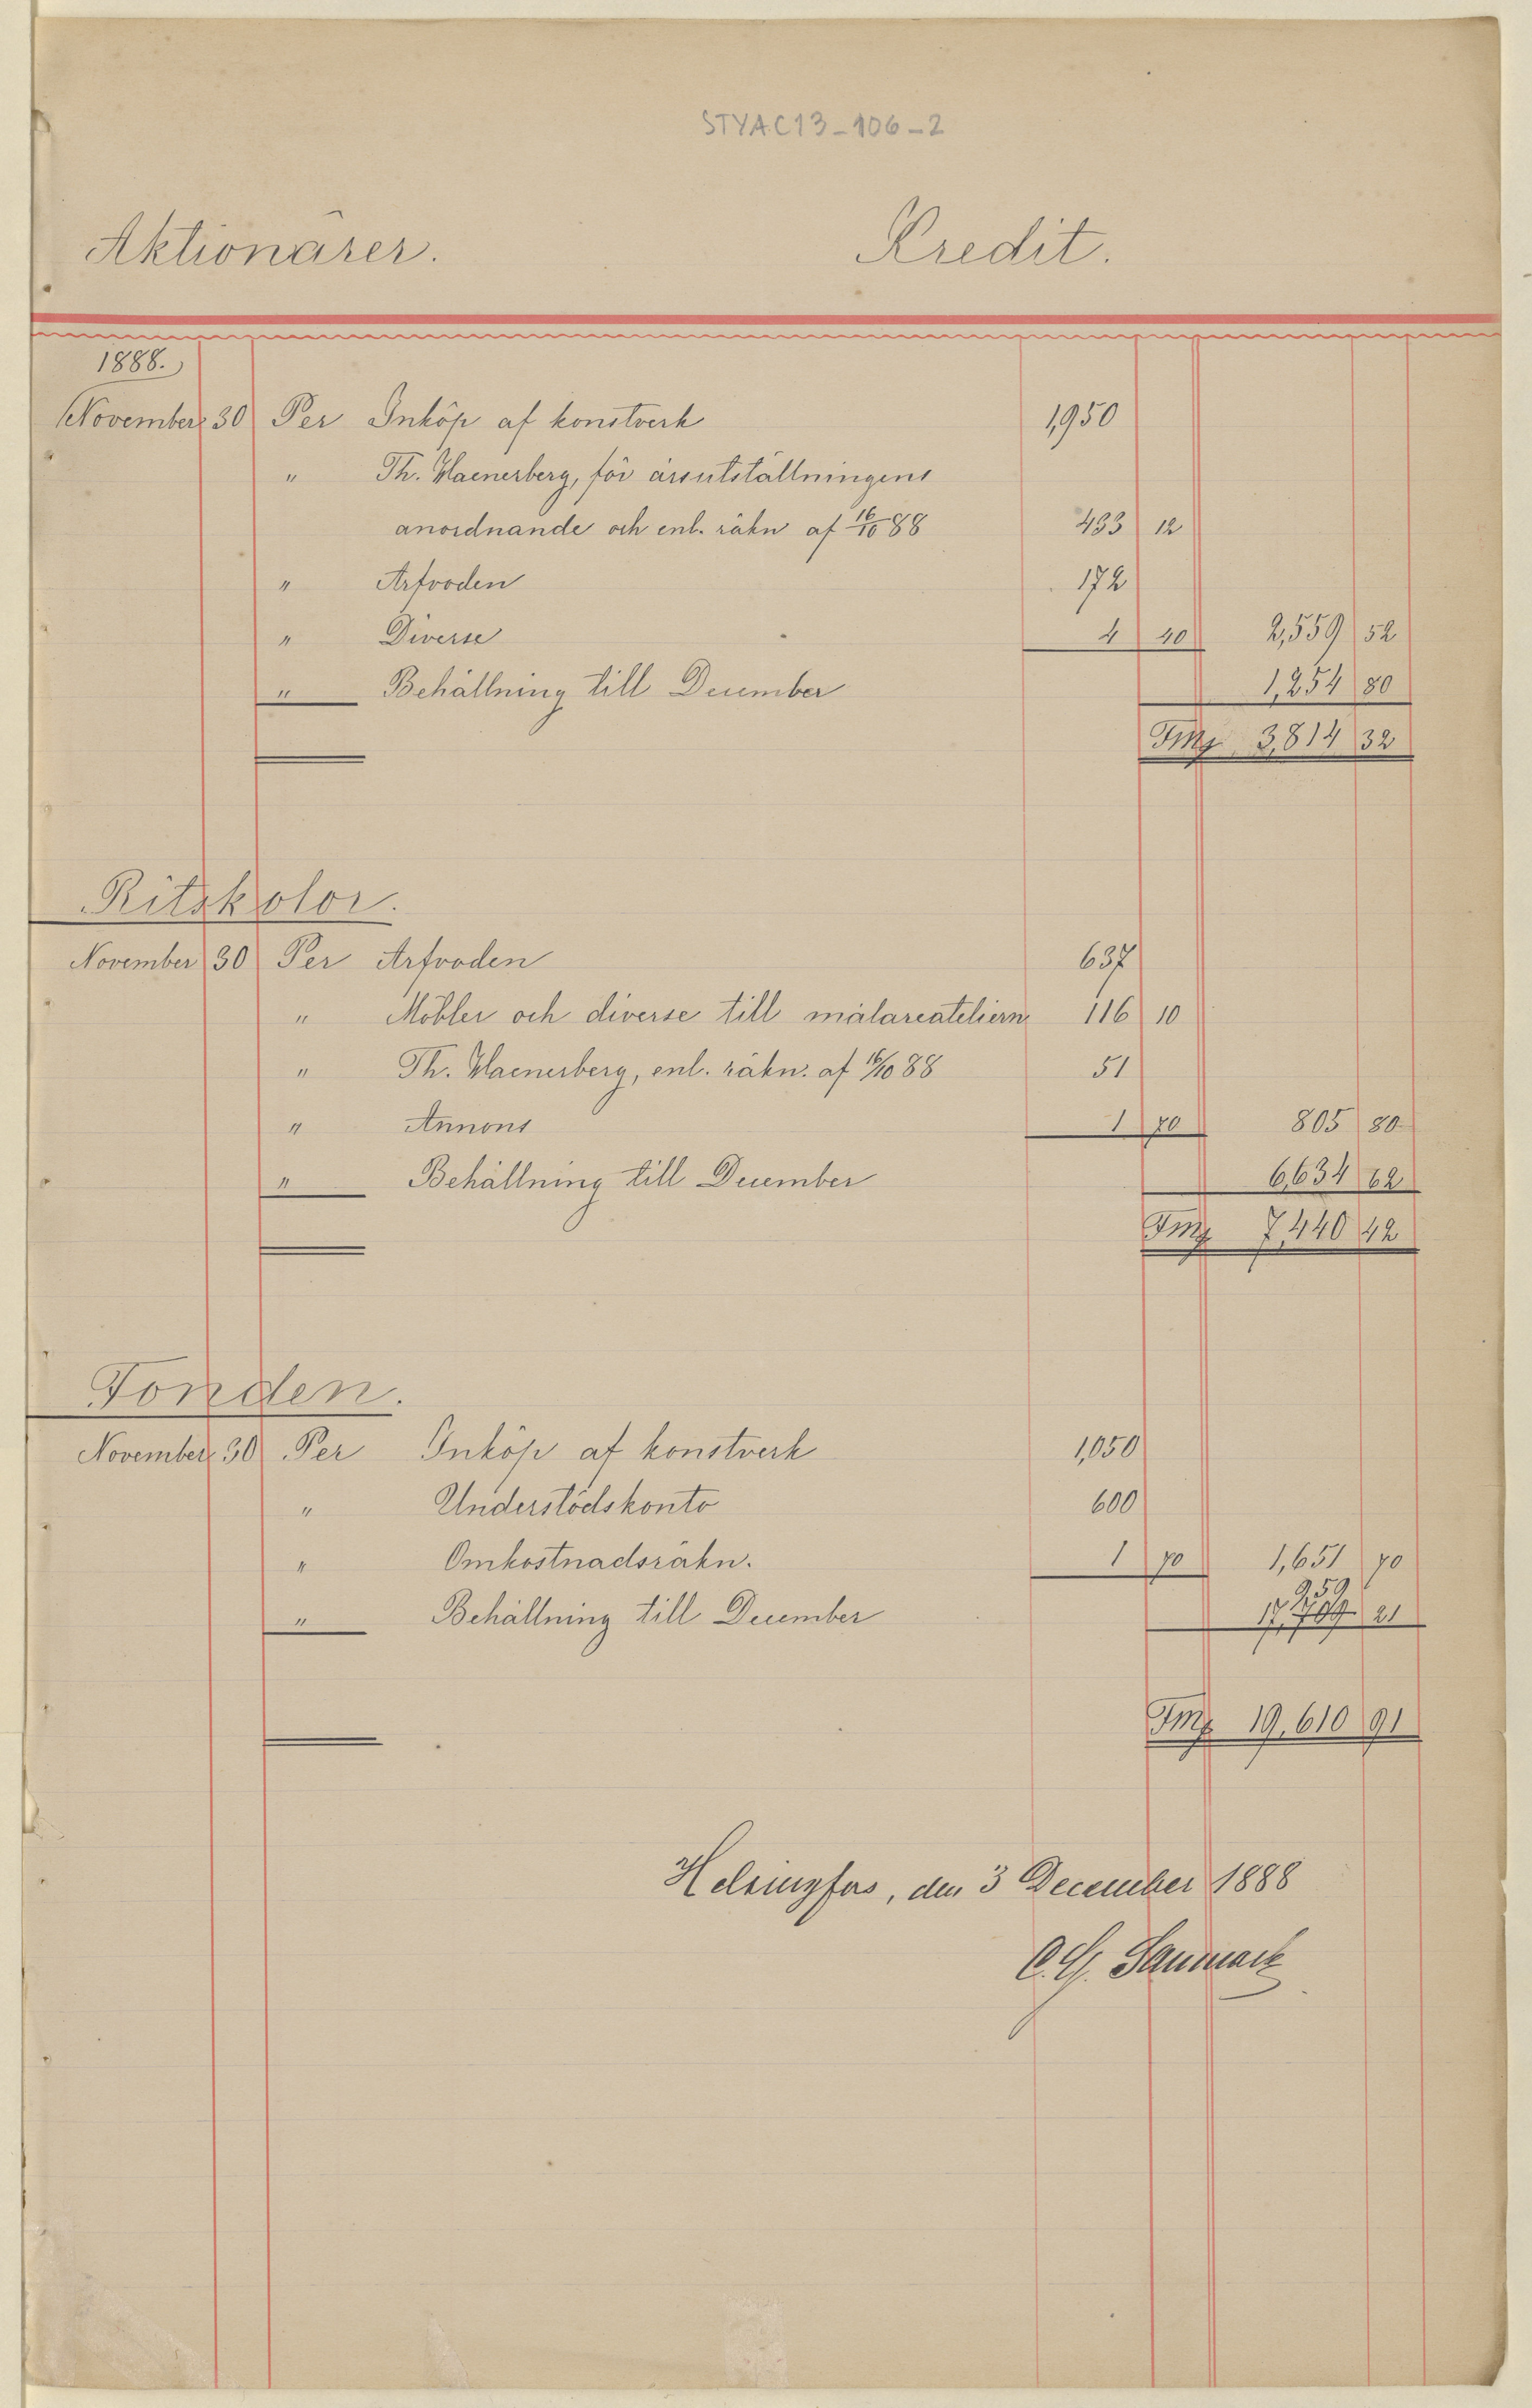 STYAC13-106-2
Aktionärer. Kredit.
1888.
November 30 Per Inköp af konstverk 1,950
" Th. Waenerberg, för årsutställningens
anordnande och enl. räkn af 16/10 88 433 12
" Arfvoden 172
" Diverse 4 40 2,559 52
" Behållning till December 1,254 80
Fmg 3,814 32
Ritskolor.
November 30 Per Arfvoden 637
" Möbler och diverse till målareateliern 116 10
" Th. Waenerberg, enl. räkn. af 16/10 88 51
" Annons 1 70 805 80
" Behållning till December 6,634 62
Fmg 7,440 42
Fonden.
November 30 Per Inköp af konstverk 1,050
" Understödskonto 600
" Omkostnadsräkn. 1 70 1,651 70
959
" Behållning till December 17, 21
Fmg 19,610 91
Helsingfors, den 3 December 1888
C. G. Sanmark